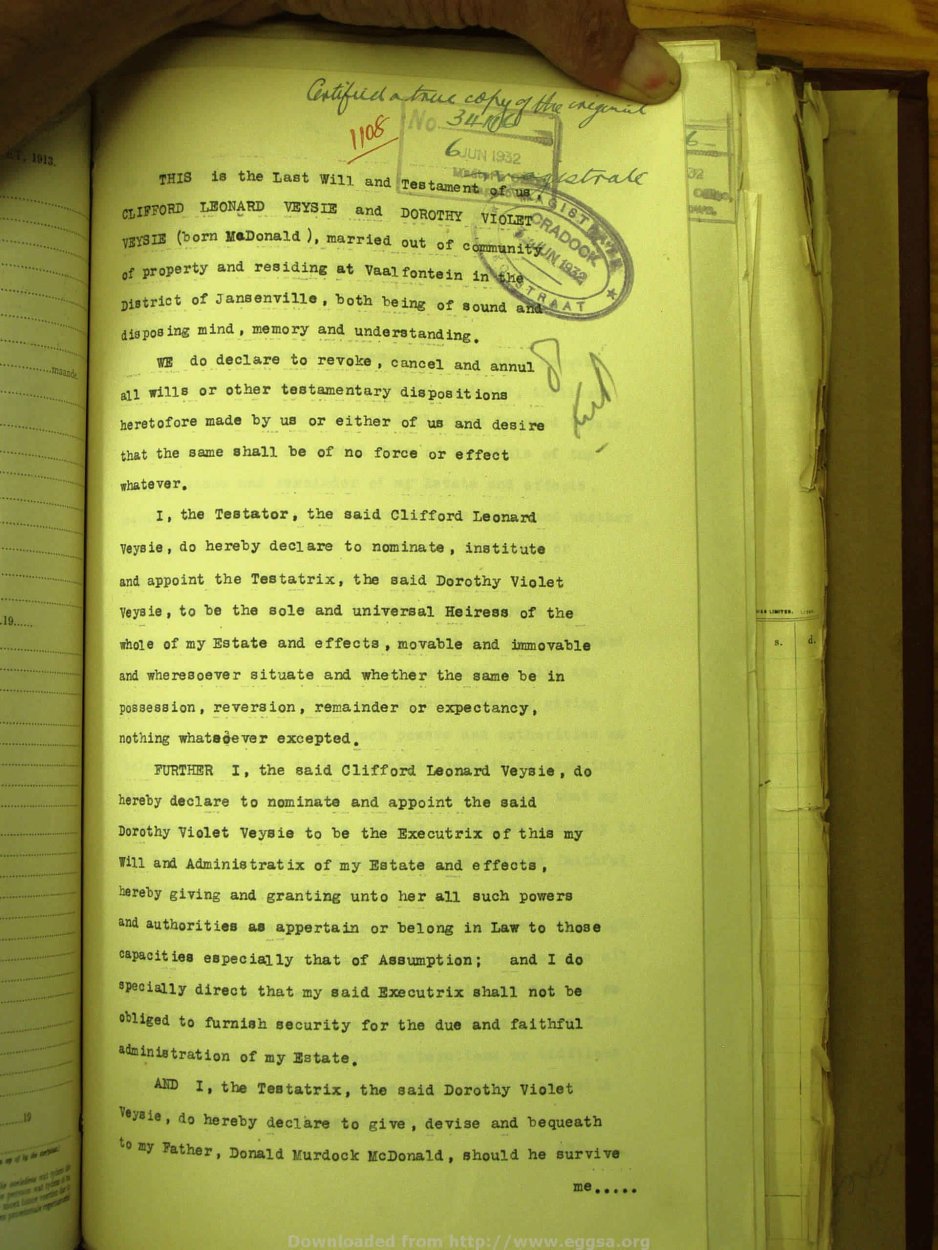 Certified a true copy of the original
No. 34
1108
6 JUN 1932
Magistrate
THIS is the Last Will and Testament of us,
CLIFFORD LEONARD VEYSIE and DOROTHY VIOLET
VEYSIE (born MaDonald ), married out of community
of property and residing at Vaalfontein in the
District of Jansenville, both being of sound and
disposing mind, memory and understanding.
CRADOCK
JUN 1932
STRAAT
WE do declare to revoke, cancel and annul
all wills or other testamentary dispositions
heretofore made by us or either of us and desire
that the same shall be of no force or effect
whatever.
I, the Testator, the said Clifford Leonard
Veysie, do hereby declare to nominate, institute
and appoint the Testatrix, the said Dorothy Violet
Veysie, to be the sole and universal Heiress of the
whole of my Estate and effects, movable and immovable
and wheresoever situate and whether the same be in
possession, reversion, remainder or expectancy,
nothing whatsoever excepted.
FURTHER I, the said Clifford Leonard Veysie, do
hereby declare to nominate and appoint the said
Dorothy Violet Veysie to be the Executrix of this my
Will and Administratix of my Estate and effects,
hereby giving and granting unto her all such powers
and authorities as appertain or belong in Law to those
capacities especially that of Assumption; and I do
specially direct that my said Executrix shall not be
obliged to furnish security for the due and faithful
administration of my Estate.
AND I, the Testatrix, the said Dorothy Violet
Veysie, do hereby declare to give, devise and bequeath
to my Father, Donald Murdock McDonald, should he survive
me.....
1913.
maande
19......
19
LIMITED.
s. d.
Downloaded from http://www.eggsa.org